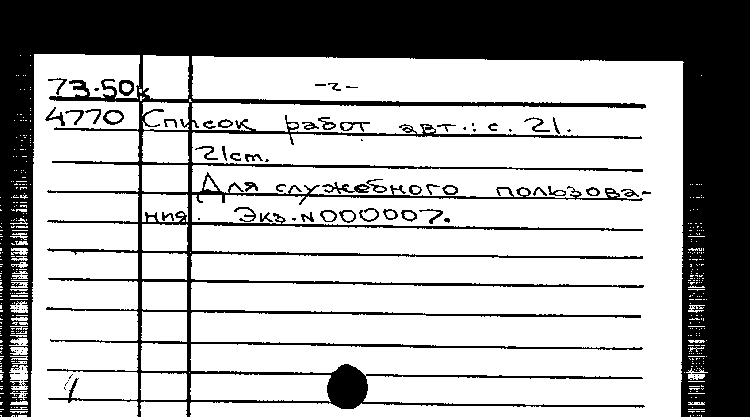 73-50к -2-
4770 Список работ авт.: с. 21.
21см.
Для служебного пользова-
ния. Экз.N000007.